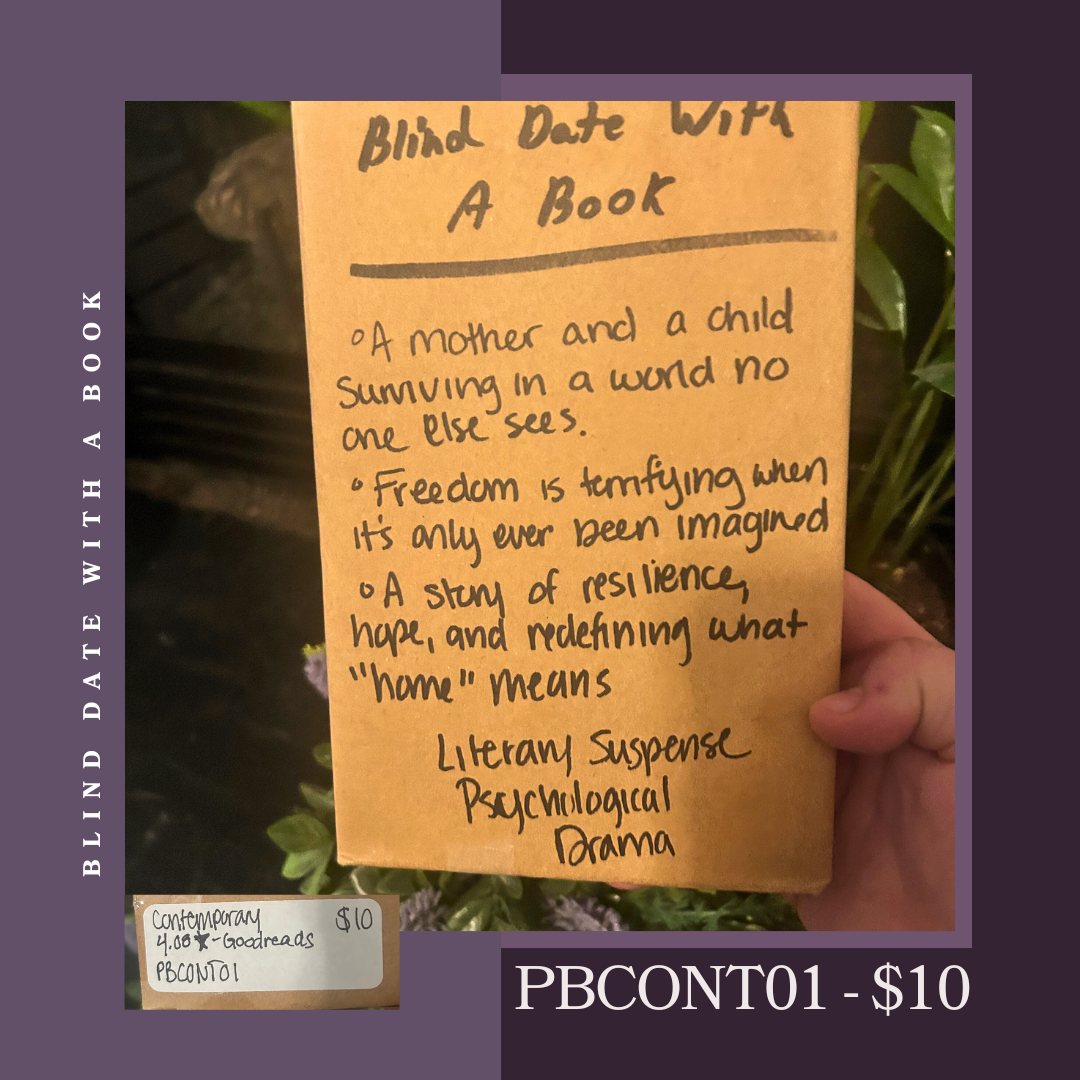 BLIND DATE WITH A BOOK
Blind Date With
A Book
°A mother and a child
Surviving in a world no
one else sees.
°Freedom is terrifying when
it's only ever been imagined
°A story of resilience,
hope, and redefining what
"home" means
Literary Suspense
Psychological
Drama
Contemporary $10
4.08★-Goodreads
PBCONT01
PBCONT01 - $10